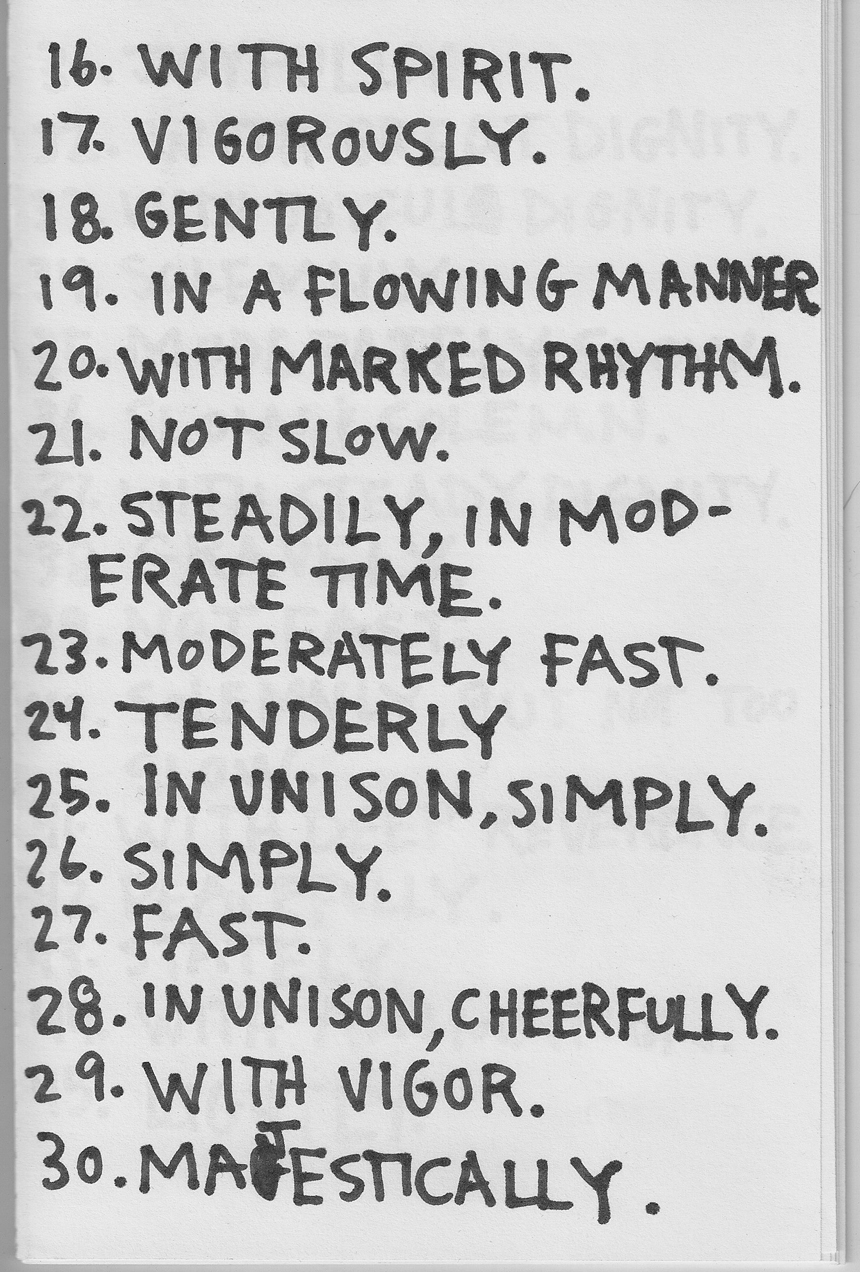 16. WITH SPIRIT.
17. VIGOROUSLY.
18. GENTLY.
19. IN A FLOWING MANNER
20. WITH MARKED RHYTHM.
21. NOT SLOW.
22. STEADILY, IN MOD-
ERATE TIME.
23. MODERATELY FAST.
24. TENDERLY
25. IN UNISON, SIMPLY.
26. SIMPLY.
27. FAST.
28. IN UNISON, CHEERFULLY.
29. WITH VIGOR.
30. MAJESTICALLY.